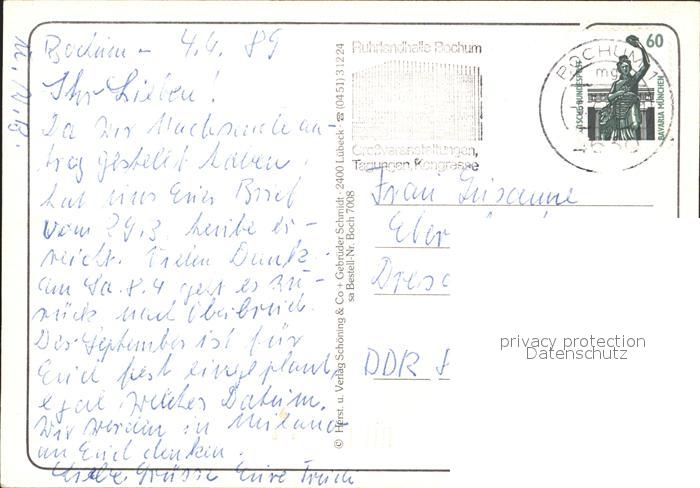 Bochum - 4.4. 89
Ihr Lieben!
Da wir Nachsende an-
trag gestellt haben
hat uns Euer Brief
vom 29.3. heute er-
reicht. Vielen Dank.
am Sa. 8.4 geht es zu-
rück nach
Der September ist für
Euch fest eingeplant,
egal welches Datum.
Wir werden in Mailand
an Euch denken.
Liebe Grüsse Eure Trudi
© Herst. u. Verlag Schöning & Co + Gebrüder Schmidt · 2400 Lübeck · ☎ (04 51) 3 12 24
sa Bestell-Nr. Boch 7008
Ruhrlandhalle Bochum
Großveranstaltungen,
Tagungen, Kongresse
BOCHUM 1
mg
4630
60
DEUTSCHE BUNDESPOST
BAVARIA MÜNCHEN
Frau Susanne
Eber
Dresd
DDR 8
privacy protection
Datenschutz